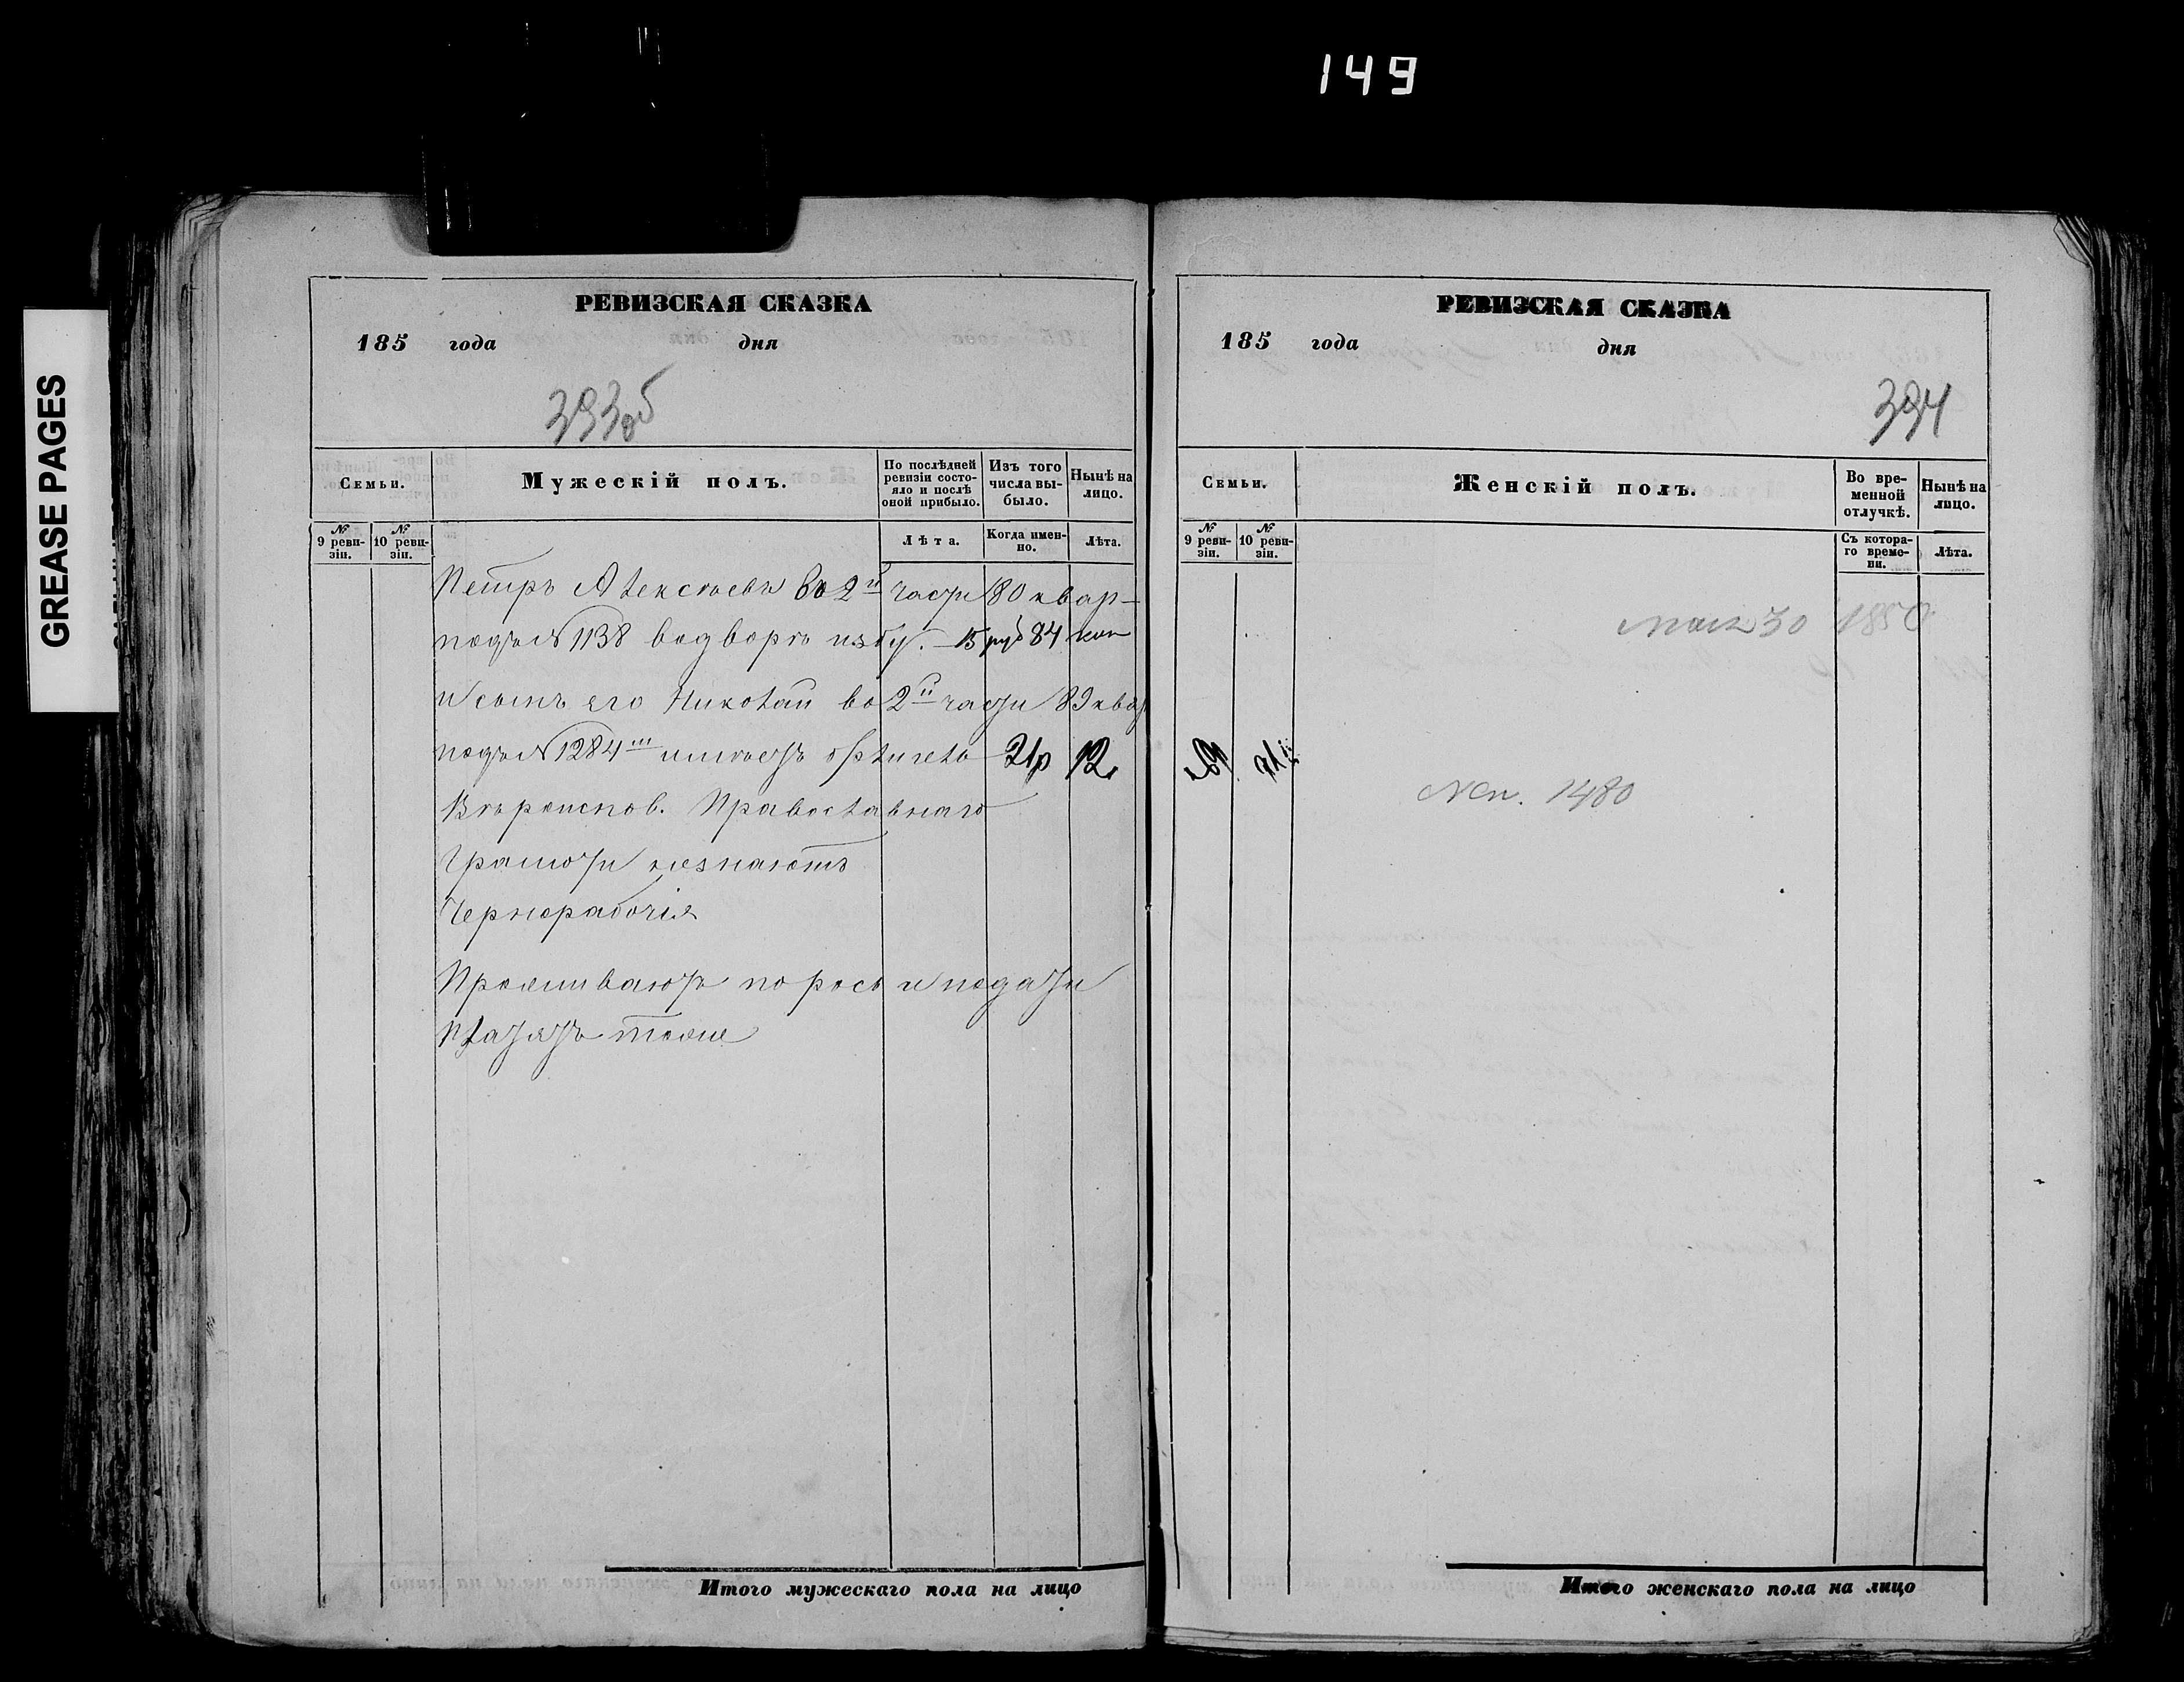 149
GREASE PAGES
РЕВИЗСКАЯ СКАЗКА
185 года дня
393об
Семьи.
Мужескій полъ.
По послѣдней ревизіи состояло и послѣ оной прибыло.
Изъ того числа выбыло.
Нынѣ на лицо.
№ 9 ревизіи.
№ 10 ревизіи.
Лѣта.
Когда именно.
Лѣта.
Петръ Алексѣевъ во 2й части 80 квар-
подъ № 1138 водворѣ избу. 15 руб 84 коп
и сынъ его Николай во 2й части 89 квар
подъ № 1284 имѣетъ флигель 21р 12
Вѣроиспов. Православнаго
Грамоти незнаютъ
Чернорабочія
Проживаютъ порось и подати
Платятъ тоже
Итого мужескаго пола на лицо
РЕВИЗСКАЯ СКАЗКА
185 года дня
394
Семьи.
Женскій полъ.
Во временной отлучкѣ.
Нынѣ на лицо.
№ 9 ревизіи.
№ 10 ревизіи.
Съ котораго времени.
Лѣта.
30 1850
1480
Итого женскаго пола на лицо